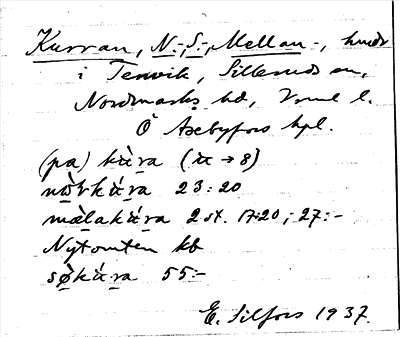 Kurran, N.-, S.-, Mellan-, hmdr
i Tenvik, Silleruds sn,
Nordmarks hd, Vrml l.
Ö Axebyfors hpl.
(pa) kùra (ù → 8)
nòrkúra 23:20
mèlakúra 2 st. 17:20, 27:-
Nytomten kb
søkúra 55:-
E. Silfors 1937.